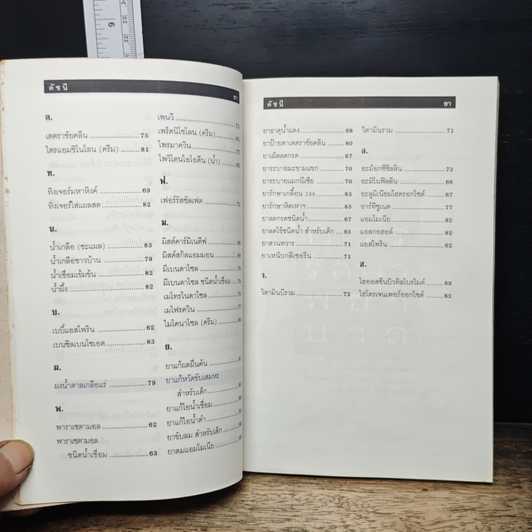 ดัชนี ยา
ต.
เตตราซัยคลีน 75
ไตรแอมซิโนโลน (ครีม) 81
ท.
ทิงเจอร์มหาหิงค์ 69
ทิงเจอร์ใส่แผลสด 82
น.
น้ำเกลือ (ชะแผล) 83
น้ำเกลือชาวบ้าน 70
น้ำเชื่อมเข้มข้น 82
น้ำผึ้ง 82
บ.
เบบี้แอสไพริน 62
เบนซิลเบนโซเอต 83
ผ.
ผงน้ำตาลเกลือแร่ 79
พ.
พาราเซตามอล 62
พาราเซตามอล
ชนิดน้ำเชื่อม 63
เพนวี
เพร็ดนิโซโลน (ครีม)
ไพรมาควิน
โพวิโดนไอโอดีน (น้ำ)
ฟ.
เฟอร์รัสซัลเฟต
ม.
มิสต์คาร์มิเนตีฟ
มิสต์สกิลแอมมอน
มีเบนดาโซล
มีเบนดาโซล ชนิดน้ำเชื่อม
เมโทรไนดาโซล
เมโฟรควิน
ไมโคนาโซล (ครีม)
ย.
ยาแก้ผดผื่นคัน
ยาแก้หวัดขับเสมหะ
สำหรับเด็ก
ยาแก้ไอน้ำเชื่อม
ยาแก้ไอน้ำดำ
ยาขับลม สำหรับเด็ก
ยาดมแอมโมเนีย
ดัชนี ยา
ยาธาตุน้ำแดง 68
ยาป้ายตาเตตราซัยคลีน 80
ยาเม็ดลดกรด 67
ยาระบายมะขามแขก 70
ยาระบายแมกนีเซีย 70
ยารักษาเกลื้อน 83
ยารักษาหิดเหาฯ 83
ยาลดกรดชนิดน้ำ 67
ยาลดไข้ชนิดน้ำ สำหรับเด็ก 63
ยาสวนทวาร 71
ยาเหน็บกลีเซอรีน 71
ว.
วิตามินบีรวม 72
วิตามินรวม 71
อ.
อะม็อกซีซิลลิน 73
อะมิโนฟิลลีน 67
อะลูมิเนียมไฮดรอกไซด์ 67
อาร์ทีซูเนต 77
แอมโมเนีย 82
แอลกอฮอล์ 82
แอสไพริน 62
ฮ.
ไฮออสซีนบิวทิลโบรไมด์ 69
ไฮโดรเจนเพอร์ออกไซด์ 82